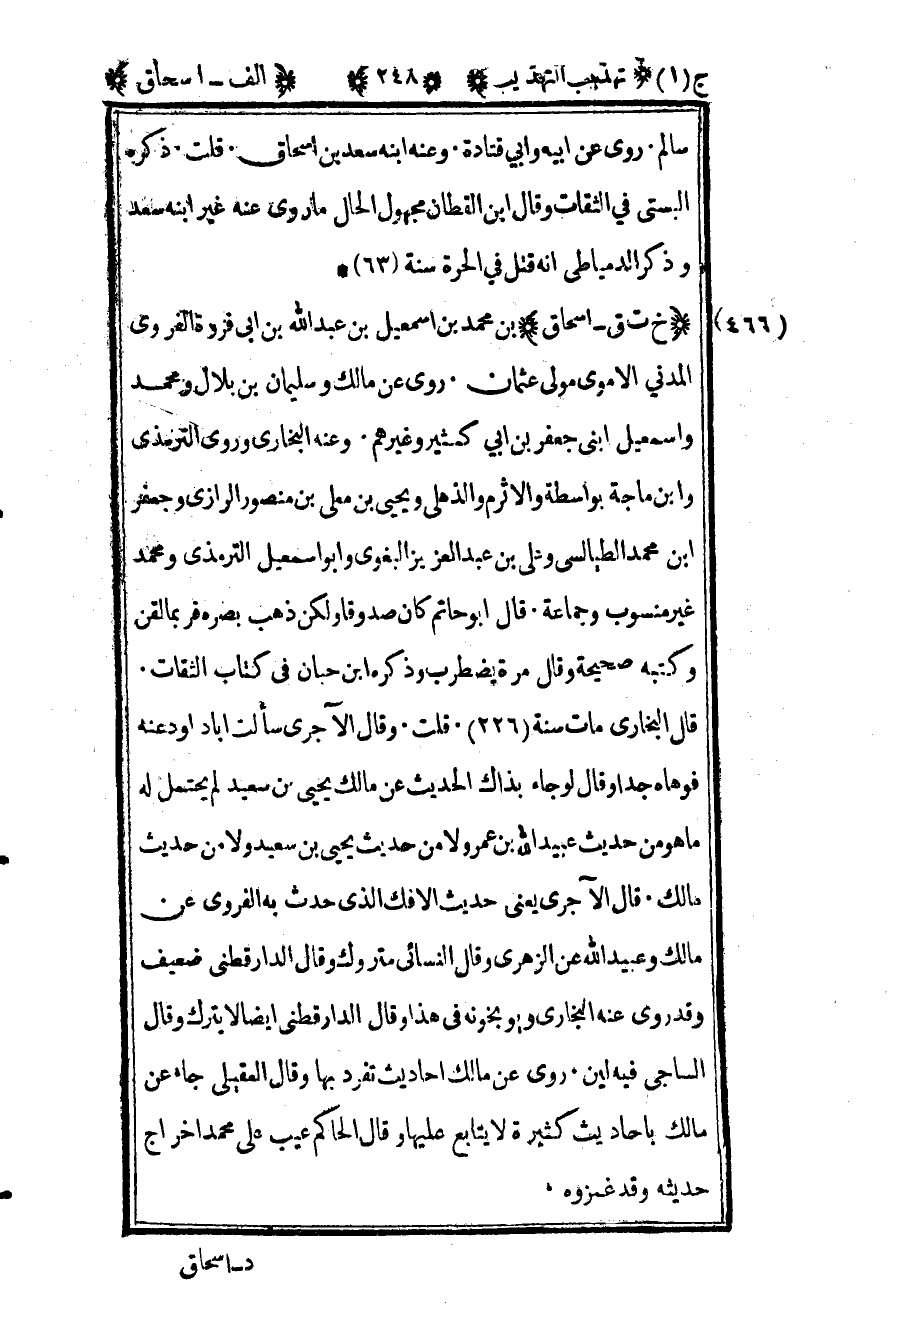 ج (١) ﴿ تهذيب التهذيب ﴾ ﴿ ٢٤٨ ﴾ ﴿ الف ـ اسحاق ﴾
سالم ٠ روى عن ابيه وابي قتادة ٠ وعنه ابنه سعد بن اسحاق ٠ قلت ٠ ذكره
البستى في الثقات وقال ابن القطان مجهول الحال ماروى عنه غير ابنه سعد
وذكر الدمياطى انه قتل في الحرة سنة (٦٣) *
(٤٦٦) ﴿ خ ت ق ـ اسحاق ﴾ بن محمد بن اسمعيل بن عبدالله بن ابى فروة الفروى
المدني الاموى مولى عثمان ٠ روى عن مالك وسليمان بن بلال ومحمد
واسمعيل ابنى جعفر بن ابي كثير وغيرهم ٠ وعنه البخارى وروى الترمذى
وابن ماجة بواسطة والاثرم والذهلى ويحيى بن معلى بن منصور الرازى وجعفر
ابن محمد الطيالسى وعلى بن عبدالعزيز البغوى وابو اسمعيل الترمذى ومحمد
غير منسوب وجماعة ٠ قال ابو حاتم كان صدوقا ولكن ذهب بصره فربما لقن
وكتبه صحيحة وقال مرة يضطرب وذكره ابن حبان فى كتاب الثقات ٠
قال البخارى مات سنة (٢٢٦) ٠ قلت ٠ وقال الآجرى سألت اباداودعنه
فوهاه جدا وقال لو جاء بذاك الحديث عن مالك يحيى بن سعيد لم يحتمل له
ماهو من حديث عبيدالله بن عمر ولا من حديث يحيى بن سعيد ولا من حديث
مالك ٠ قال الآجرى يعنى حديث الافك الذى حدث به الفروى عن
مالك وعبيدالله عن الزهرى وقال النسائى متروك وقال الدارقطنى ضعيف
وقدروى عنه البخارى ويوبخونه فى هذا وقال الدارقطنى ايضا لا يترك وقال
الساجى فيه لين ٠ روى عن مالك احاديث تفرد بها وقال العقيلى جاء عن
مالك باحاديث كثيرة لا يتابع عليها وقال الحاكم عيب على محمد اخراج
حديثه وقد غمزوه ٠
د ـ اسحاق